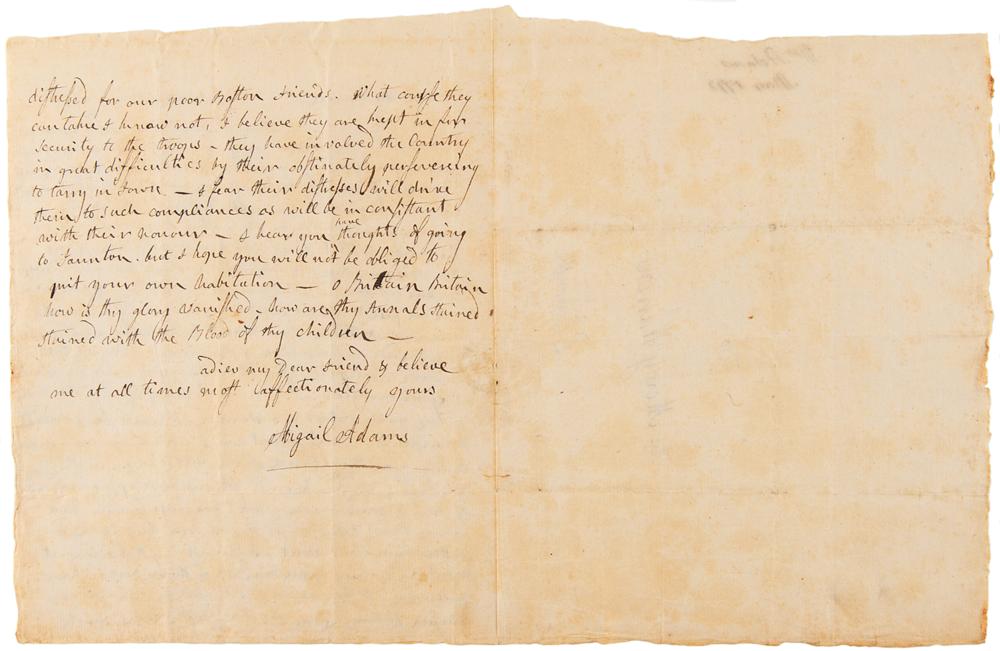 distressed for our poor Boston Friends. What course they
can take I know not, I believe they are kept in for
security to the troops - they have involved the Country
in great difficulties by their obstinately persevereing
to tarry in Town — I fear their distresses will drive
them to such compliances as will be inconsistant
with their honour — I hear you have thoughts of going
to Taunton. but I hope you will not be obliged to
quit your own habitation — O Brittain Britain
how is thy glory vanished - how are thy Annals stained
stained with the Blood of thy children —
adieu my Dear Friend & believe
me at all times most affectionately yours
Abigail Adams